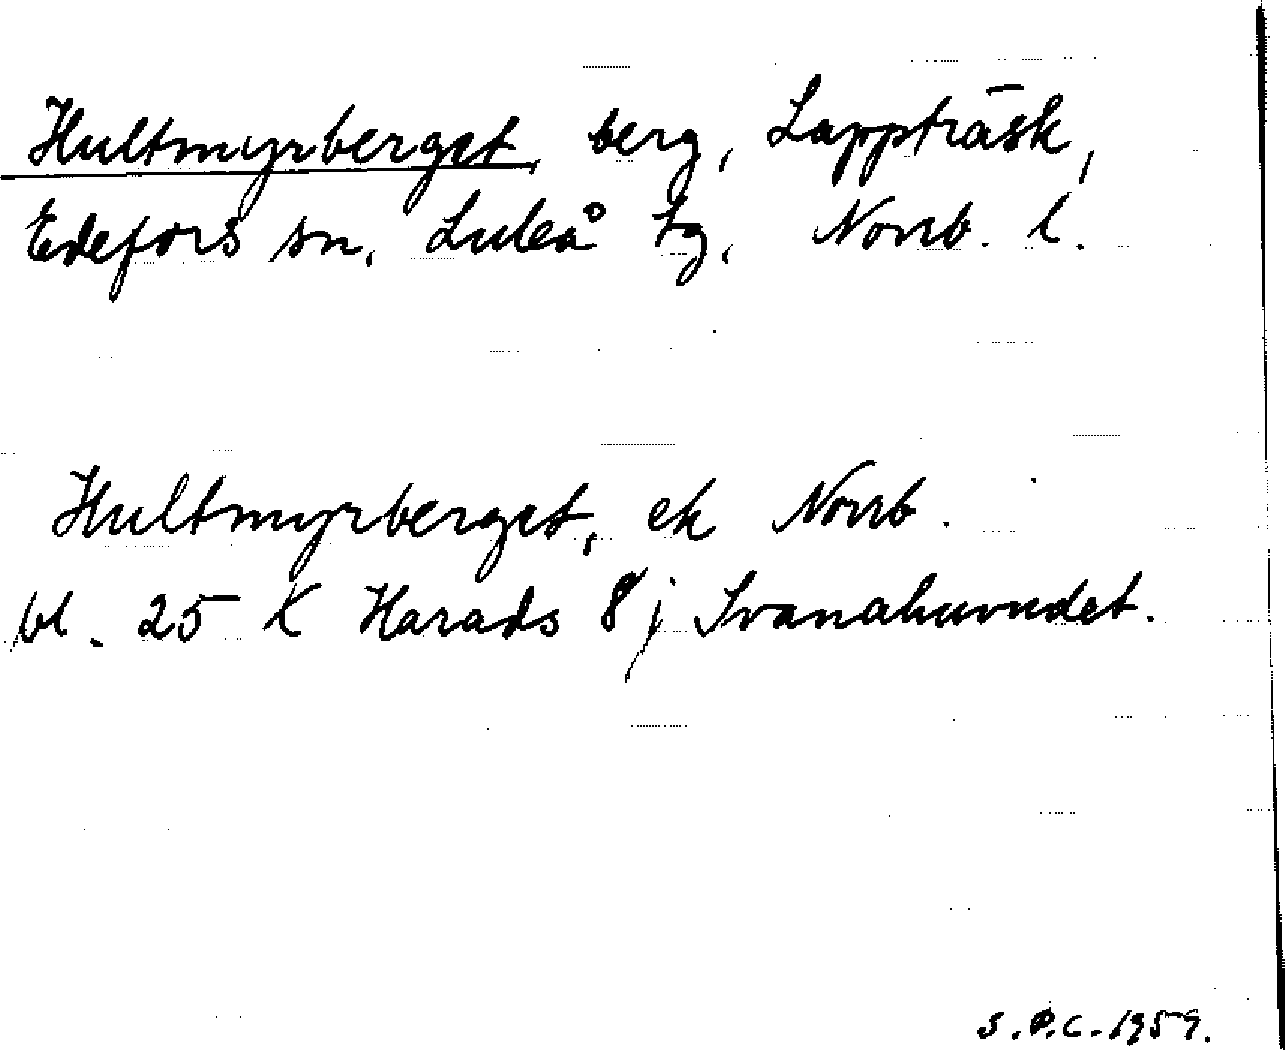 Hultmyrberget, berg, Lappträsk,
Edefors sn, Luleå tg, Norrb. l.
Hultmyrberget, ek Norrb.
bl. 25 K Harads 8 j Svanahuvudet.
S.P.C. 1959.